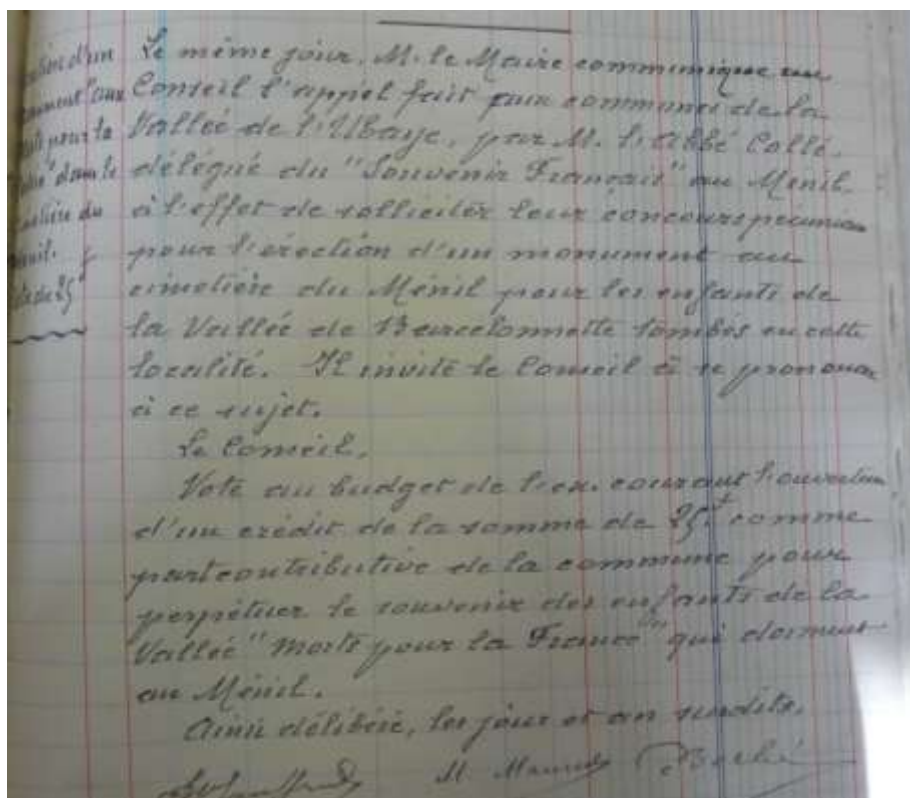 Le même jour, M. le Maire communique au
Conseil l'appel fait aux communes de la
Vallée de l'Ubaye, par M. l'Abbé Collé,
délégué du "Souvenir Français" au Ménil
à l'effet de solliciter leur concours pécuniaire
pour l'érection d'un monument au
cimetière du Ménil pour les enfants de
la Vallée de Barcelonnette tombés en cette
localité. Il invite le Conseil à se prononcer
à ce sujet.
Le Conseil,
Vote au budget de l'ex. courant l'ouverture
d'un crédit de la somme de 25f comme
part contributive de la commune pour
perpétuer le souvenir des enfants de la
Vallée "Morts pour la France" qui dorment
au Ménil.
Ainsi délibéré, les jour et an susdits.
d'un
monument aux
pour la
dans le
cimetière du
Ménil.
25f